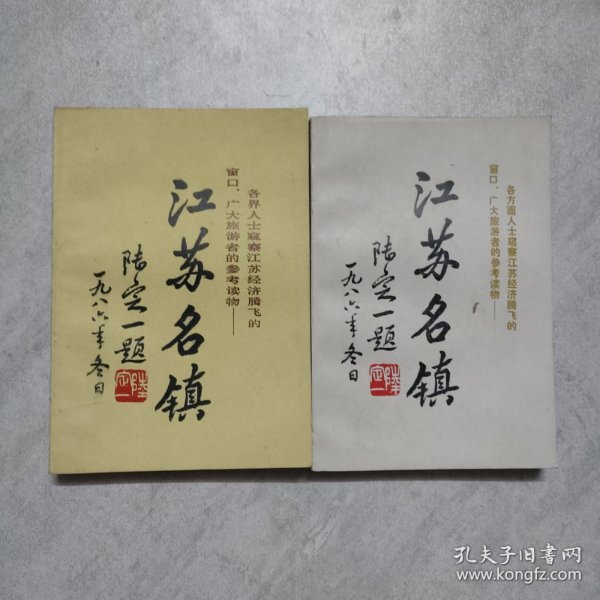 各界人士窥察江苏经济腾飞的
窗口、广大旅游者的参考读物——
江苏名镇
陆定一题
一九八六年冬日
陸定一
各方面人士窥察江苏经济腾飞的
窗口、广大旅游者的参考读物——
江苏名镇
陆定一题
一九八六年冬日
陸定一
孔夫子旧书网
www.kongfz.com